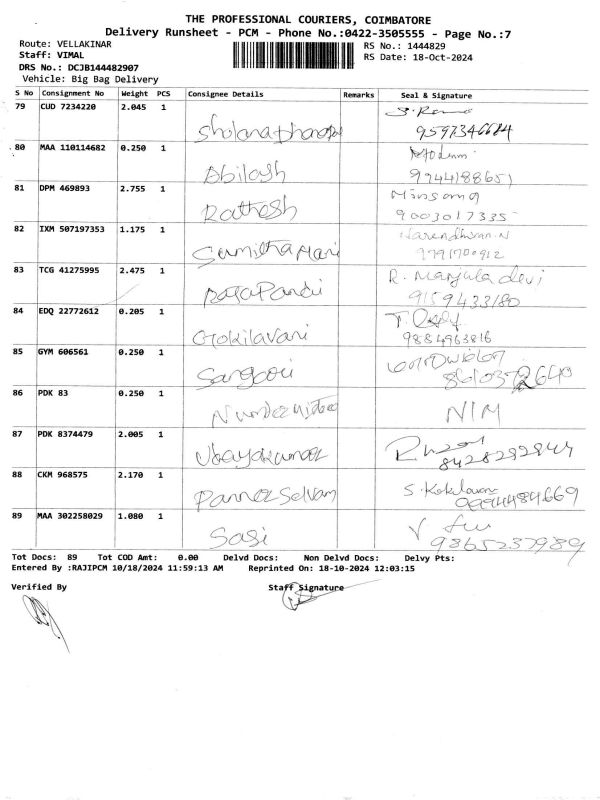 THE PROFESSIONAL COURIERS, COIMBATORE
Delivery Runsheet - PCM - Phone No.:0422-3505555 - Page No.:7
Route: VELLAKINAR
RS No.: 1444829
Staff: VIMAL
RS Date: 18-Oct-2024
DRS No.: DCJB144482907
Vehicle: Big Bag Delivery
S No Consignment No Weight PCS Consignee Details Remarks Seal & Signature
79 CUD 7234220 2.045 1
9597346684
80 MAA 110114682 0.250 1
Abilash 9944188651
81 DPM 469893 2.755 1
Rathesh 9003017335
82 IXM 507197353 1.175 1 Harendhiran.N
Sumitha Mani 9791700912
83 TCG 41275995 2.475 1 R. Manjula devi
RajaPandi 9159433180
84 EDQ 22772612 0.205 1
Gokilavani 9884963816
85 GYM 606561 0.250 1
Sangavi
86 PDK 83 0.250 1
NIM
87 PDK 8374479 2.005 1
Udayakumar
88 CKM 968575 2.170 1 S. Kokilavani
PanneerSelvam 9994484669
89 MAA 302258029 1.080 1
Sasi 9865237989
Tot Docs: 89 Tot COD Amt: 0.00 Delvd Docs: Non Delvd Docs: Delvy Pts:
Entered By :RAJIPCM 10/18/2024 11:59:13 AM Reprinted On: 18-10-2024 12:03:15
Verified By Staff Signature